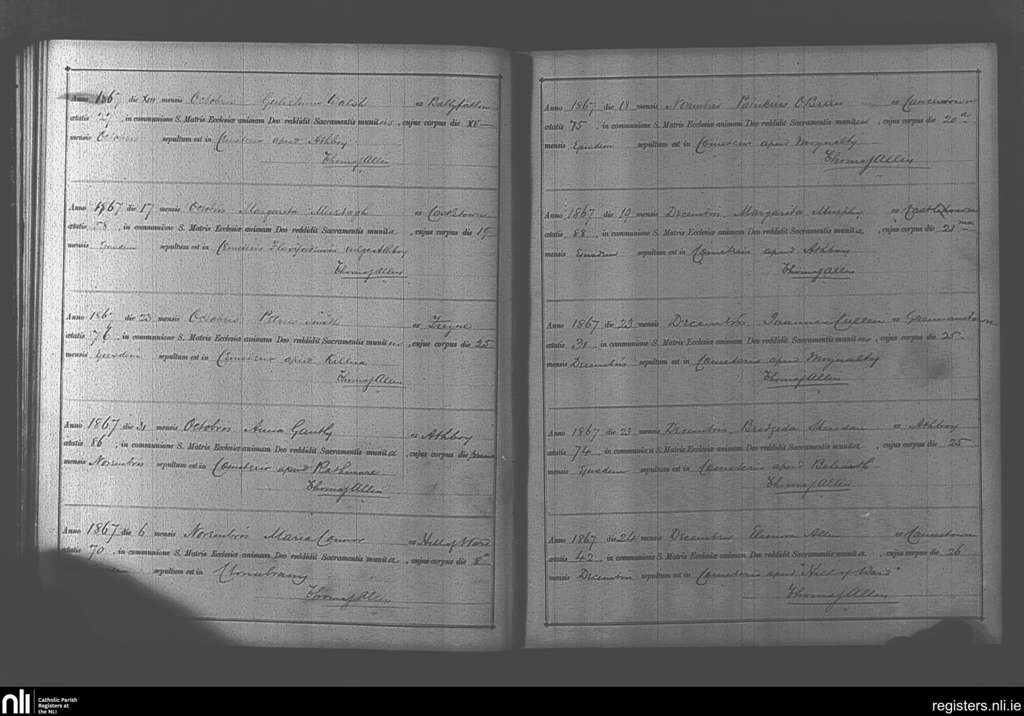 Anno 1867 die XIII mensis Octobris Gulielmus Walsh ex Ballyfallon
ætatis 27, in communione S. Matris Ecclesiæ animam Deo reddidit Sacramentis munitus, cujus corpus die XV
mensis Octobris sepultum est in Cœmeterio apud Athboy
Thomas J Allen
Anno 1867 die 17 mensis Octobris Margarita Murtagh ex
ætatis in communione S. Matris Ecclesiæ animam Deo reddidit Sacramentis munita, cujus corpus die 19
mensis Ejusdem sepultum est in Cœmeterio vulgo Athboy
Thomas J Allen
Anno 186 die 23 mensis Octobris Petrus Smith ex Frayne
ætatis 76, in communione S. Matris Ecclesiæ animam Deo reddidit Sacramentis munitus, cujus corpus die 25
mensis Ejusdem sepultum est in Cœmeterio apud Killua
Thomas J Allen
Anno 1867 die 31 mensis Octobris Anna Gantly ex Athboy
ætatis 86, in communione S. Matris Ecclesiæ animam Deo reddidit Sacramentis munita, cujus corpus die
mensis Novembris sepultum est in Cœmeterio apud Rathmore
Thomas J Allen
Anno 1867 die 6 mensis Novembris Maria Connor ex Hill of Ward
ætatis 70, in communione S. Matris Ecclesiæ animam Deo reddidit Sacramentis munita, cujus corpus die 8
sepultum est in
Thomas J Allen
Anno 1867 die 18 mensis Novembris Patricius O'Brien ex
ætatis 75, in communione S. Matris Ecclesiæ animam Deo reddidit Sacramentis munitus, cujus corpus die 20
mensis Ejusdem sepultum est in Cœmeterio apud Moynalty
Thomas J Allen
Anno 1867 die 19 mensis Decembris Margarita Murphy ex
ætatis 88, in communione S. Matris Ecclesiæ animam Deo reddidit Sacramentis munita, cujus corpus die 21
mensis Ejusdem sepultum est in Cœmeterio apud Athboy
Thomas J Allen
Anno 1867 die 23 mensis Decembris Joannes Cullen ex
ætatis 31, in communione S. Matris Ecclesiæ animam Deo reddidit Sacramentis munitus, cujus corpus die 25
mensis Decembris sepultum est in Cœmeterio apud Moynalty
Thomas J Allen
Anno 1867 die 23 mensis Decembris Brigida Sheridan ex Athboy
ætatis 74, in communione S. Matris Ecclesiæ animam Deo reddidit Sacramentis munita, cujus corpus die 25
mensis Ejusdem sepultum est in Cœmeterio apud
Thomas J Allen
Anno 1867 die 24 mensis Decembris Allen ex
ætatis 42, in communione S. Matris Ecclesiæ animam Deo reddidit Sacramentis munita, cujus corpus die 26
mensis Decembris sepultum est in Cœmeterio apud "Hill of Ward"
Thomas J Allen
nli Catholic Parish
Registers at
the NLI
registers.nli.ie